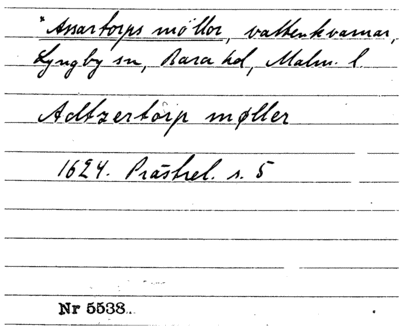 *Assartorps möllor, vattenkvarnar,
Lyngby sn, Bara hd, Malm. l.
Adtzertorp møller
1624. Prästrel. s. 5
Nr 5538.